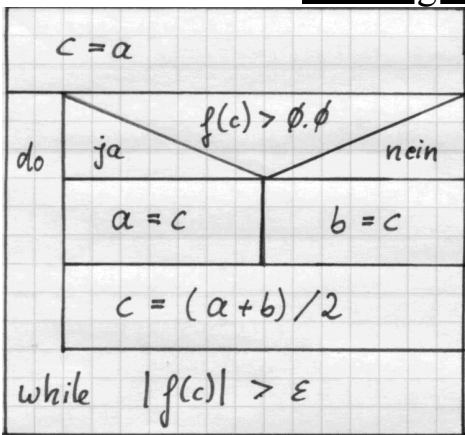 c = a
f(c) > 0.0
do
ja
nein
a = c
b = c
c = (a+b)/2
while |f(c)| > ε